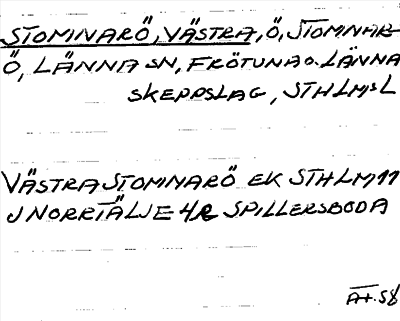 STOMNARÖ, VÄSTRA, Ö, STOMNAR-
Ö, LÄNNA SN, FRÖTUNA O. LÄNNA
SKEPPSLAG, STHLMS L
VÄSTRA STOMNARÖ EK STHLM 11
J NORRTÄLJE 4 SPILLERSBODA